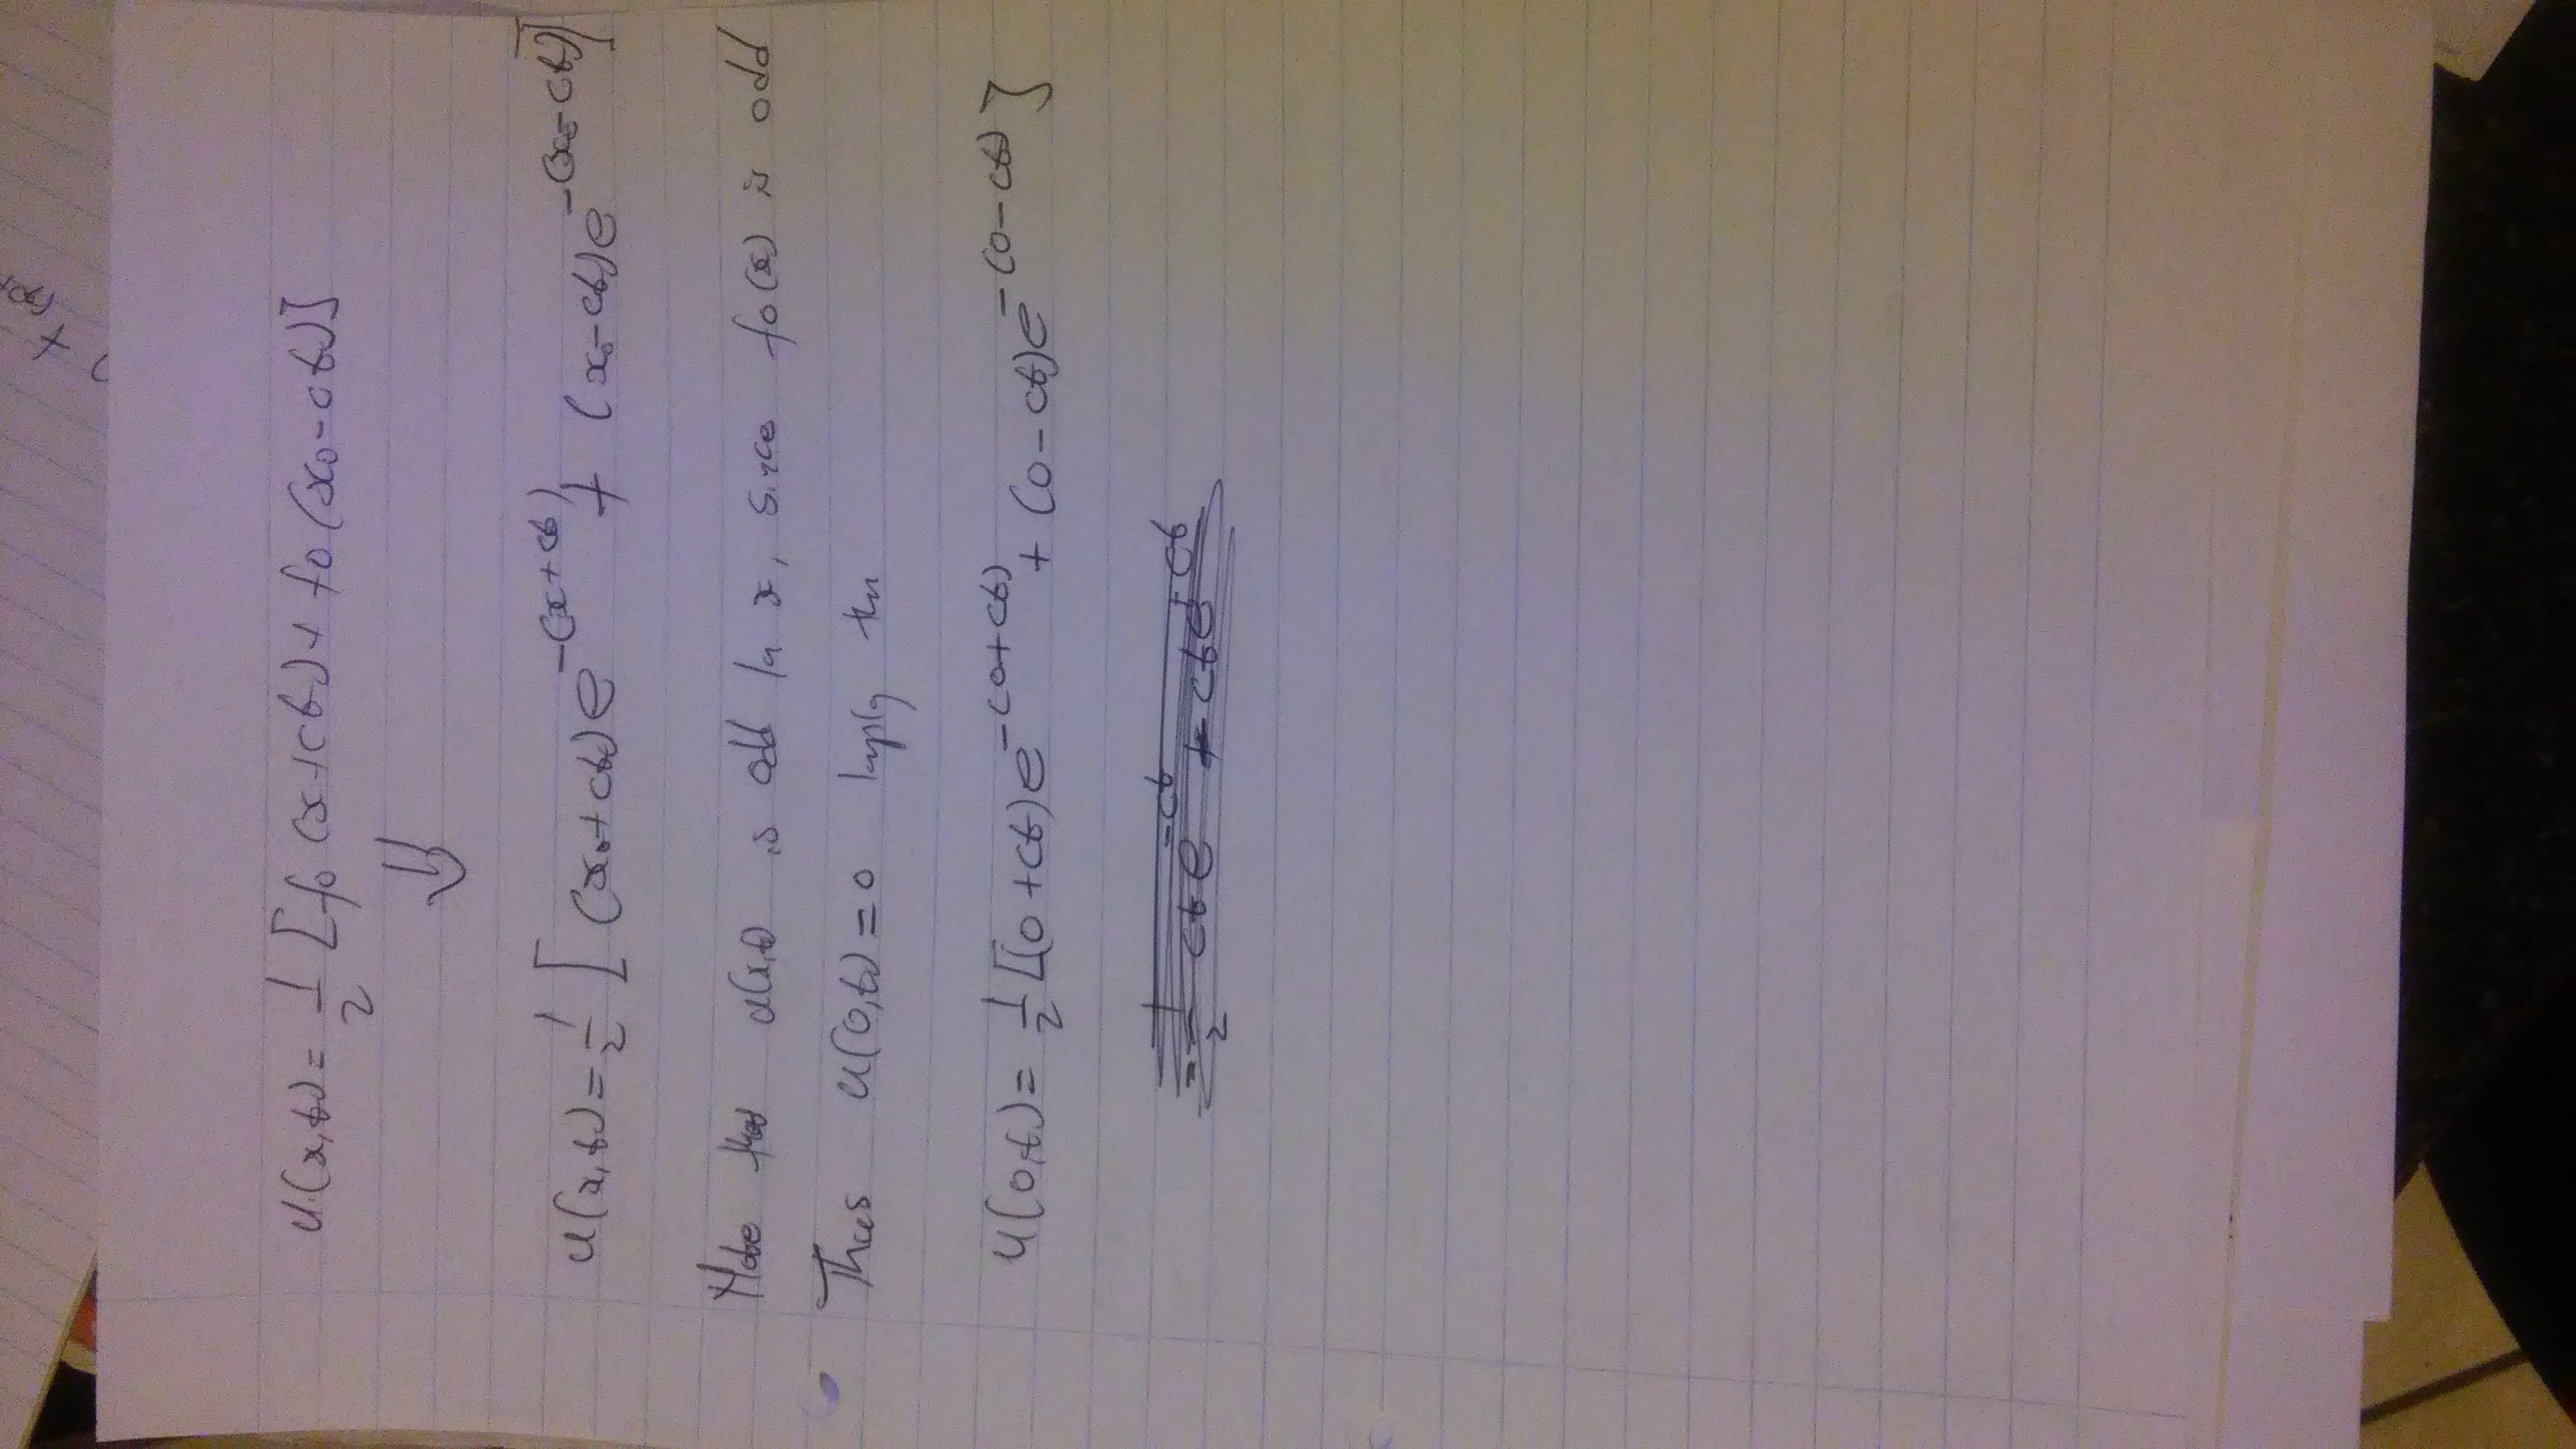 u(x,t) = 1/2 [fo(x+ct) + fo(xo-ct)]
⇓
u(x,t) = 1/2 [(xo+ct)e^-(x+ct) + (xo-ct)e^-(xo-ct)]
Note that u(x,t) is odd in x, since fo(x) is odd
Thus u(0,t) = 0 imply the
u(0,t) = 1/2 [(0+ct)e^-(0+ct) + (0-ct)e^-(0-ct)]